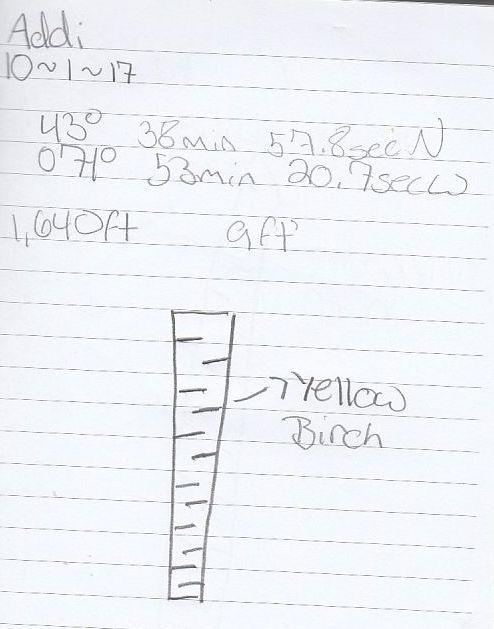 Addi
10~1~17
43° 38min 57.8sec N
071° 53min 20.7sec W
1,640ft 9ft
Yellow
Birch